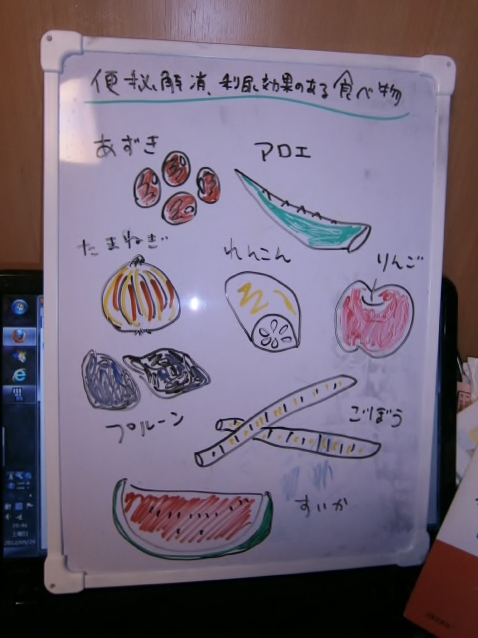 便秘解消、利尿効果のある食べ物
あずき
アロエ
たまねぎ
れんこん
りんご
プルーン
ごぼう
すいか